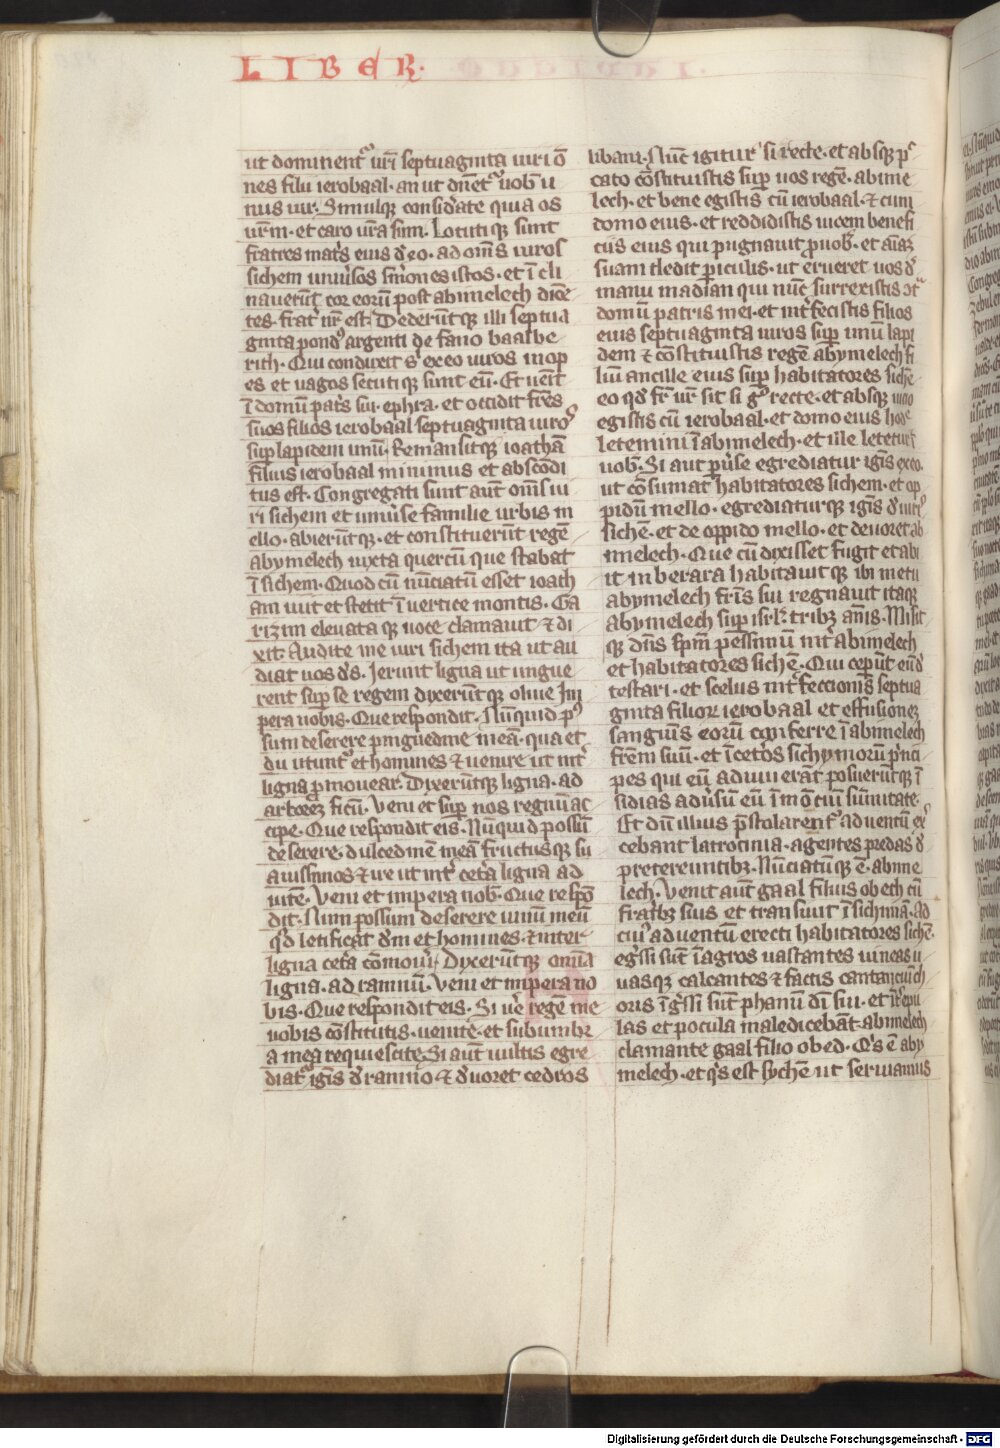 LIBER.
ut dominent᷑ u͛ri septuaginta uiri ō
nes filii ierobaal. an ut dn̄et᷑ uob̄ u
nus uir. Simulqꝫ consid̓ate quia os
ur̄m. et caro ur̄a sum. Locutiqꝫ sunt
fratres mat̓s eius d̓ eo. ad om̄s uiros
sichem uniu̓sos s̓mones istos. et ī cli
nauerūt cor eorū post abimelech dicē
tes. frat̓ nr̄ est. Dederūtqꝫ illi septua
ginta pond̓ argenti de fano baalbe
rith. Qui conduxit s̓ ex eo uiros inop
es et uagos secutiqꝫ sunt eū. Et uēit
ī domū pat̓s sui ephra. et occidit fr̄es
suos filios ierobaal septuaginta uiroꝝ
sup lapidem unū. Remansitqꝫ ioathā
filius ierobaal minimus et abscōdi
tus est. Congregati sunt aūt om̄s ui
ri sichem et uniu̓se familie urbis m
ello. abierūtqꝫ. et constituerūt regē
abymelech iuxta quercū que stabat
ī sichem. Quod cū nūciatū esset ioath
am iuit et stetit ī uertice montis. Ga
rizim eleuataqꝫ uoce clamauit ⁊ di
xit. Audite me uiri sichem ita ut au
diat uos d̄s. Ierunt ligna ut ungue
rent sup̄ se regem dixerūtqꝫ oliue Im
pera nobis. Que respondit. Nūquid pos
sum deserere pinguedinē meā. qua et
dii utunt᷑ et homines ⁊ uenire ut int̓
ligna ꝓmouear. Dixerūtqꝫ ligna. ad
arborē ficū. Veni et sup̄ nos regnū ac
cipe. Que respondit eis. Nūquid possū
deserere. dulcedinē meā fructusqꝫ su
auissimos ⁊ ire ut int̓ cet̓a ligna ad
uitē. Veni et impera nob̄. Que respō
dit. Num possum deserere uinū meū
qd̄ letificat d̄m et homines. ⁊ inter
ligna cet̓a cōmoue̓i. Dixerūtqꝫ omīa
ligna. ad ramnū. Veni et impera no
bis. Que respondit eis. Si ue̓ regē me
uobis cōstitutis. uenite. et sub umbr
a mea requiescite. Si aūt uultis egre
diat᷑ ignis d̓ ramno ⁊ d̓uoret cedros
libani. Nūc igitur si recte. et absqꝫ pec
cato cōstituistis sup̄ uos regē. abime
lech. et bene egistis cū ierobaal. ⁊ cum
domo eius. et reddidistis uicem benefi
ciis eius qui pugnauit ꝓ uob̄. et aīaꝫ
suam dedit periculis. ut erueret uos d̓
manu madian qui nūc surrexistis ɔt̄
domū patris mei. et int̓fecistis filios
eius septuaginta uiros sup̄ unū lapi
dem ⁊ cōstituistis regē abymelech fi
liū ancille eius sup̄ habitatores siche
eo qd̄ fr̄ ur̄ sit si g̊ recte. et absqꝫ uicio
egistis cū ierobaal. et domo eius hodie
letemini ī abimelech. et ille letetur ī
uob̄. Si aūt p̱u̓se egrediatur ignis ex eo.
ut cōsumat habitatores sichem. et op
pidū mello. egrediaturqꝫ ignis d̓ uiris
sichē. et de oppido mello. et deuoret ab
imelech. Que cū dixisset fugit et abi
it in berara habitauitqꝫ ibi metu
abymelech fr̄is sui regnauit itaqꝫ
abymelech sup̄ isrl̄. tribꝫ annis. Misit
qꝫ dn̄s sp̄m pessimū int̓ abimelech
et habitatores sichē. Qui cep̱ūt eū d̓
testari. et scelus int̓feccionis septua
ginta filioꝝ ierobaal et effusionez
sanguīs eorū conferre ī abimelech
fr̄em suū. et ī cet̓os sichymorū p̓nci
pes qui eū adiuuerāt posuerūtqꝫ ī
sidias adu̓sum eū ī mōtiū sūmitate.
Et dū illius p̄stolarent᷑ aduentū ex̓
cebant latrocinia. agentes predas d̓
pretereuntibꝫ. Nūciatūqꝫ ē. abime
lech. Venit aūt gaal filius obech cū
frat̓bꝫ suis et transiuit ī sichimā. ad
cui᷒ aduentū erecti habitatores sichē.
egr̄ssi sūt ī agros uastantes uineas u
uasqꝫ calcantes ⁊ factis cantanciū ch
oris īgr̄ssi sūt phanū dī sui. et int̓ epu
las et pocula maledicebāt abimelech
clamante gaal filio obed. Q̓s ē aby
melech. et q̓s est sychē ut seruiamus
Digitalisierung gefördert durch die Deutsche Forschungsgemeinschaft - DFG